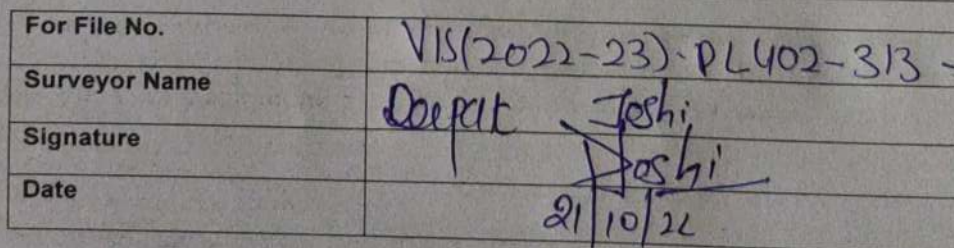 For File No. VIS(2022-23)-PL402-313-
Surveyor Name Deepak Joshi
Signature Joshi
Date 21/10/22